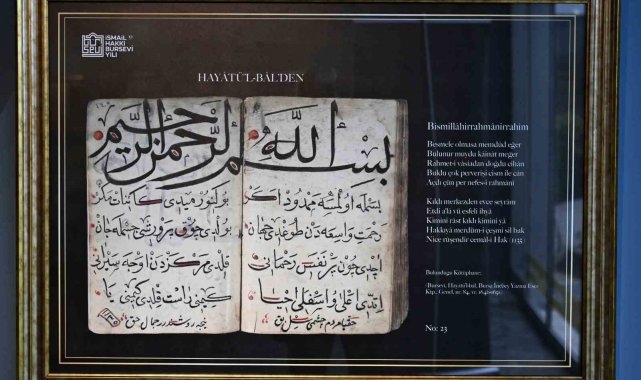 İSMAİL
HAKKI
BURSEVİ
YILI
HAYÂTÜ'L-BÂL'DEN
بسم الله الرحمن الرحيم
بسمله اولمسه ممدود اكر
بولنورميدى كائنات مكر
رحمت واسعه دن طوغدى جهان
بولدى چوق پرورشى جان
اچدى چون بر نفس رحمانى
قلدى مركزدن اوجه سيرانى
ايتدى اعلى واسفلى احيا
كيمنى راست قلدى كيمنى يا
حقيا مردم چشمى سل بق
نيجه روشندر جمال حق
Bismillâhirrahmânirrahîm
Besmele olmasa memdûd eğer
Bulunur muydu kâinât meger
Rahmet-i vâsiadan doğdu cihân
Buldu çok perverişi cism ile cân
Açdı çün ber nefes-i rahmânî
Kıldı merkezden evce seyrânı
Etdi a'lâ vü esfeli ihyâ
Kimini râst kıldı kimini yâ
Hakkıyâ merdüm-i çeşmi sil bak
Nice rûşendir cemâl-i Hak
Bulunduğu Kütüphane:
No: 23